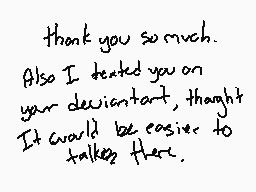 thank you so much.
Also I texted you on
your deviantart, thought
It would be easier to
talken there.